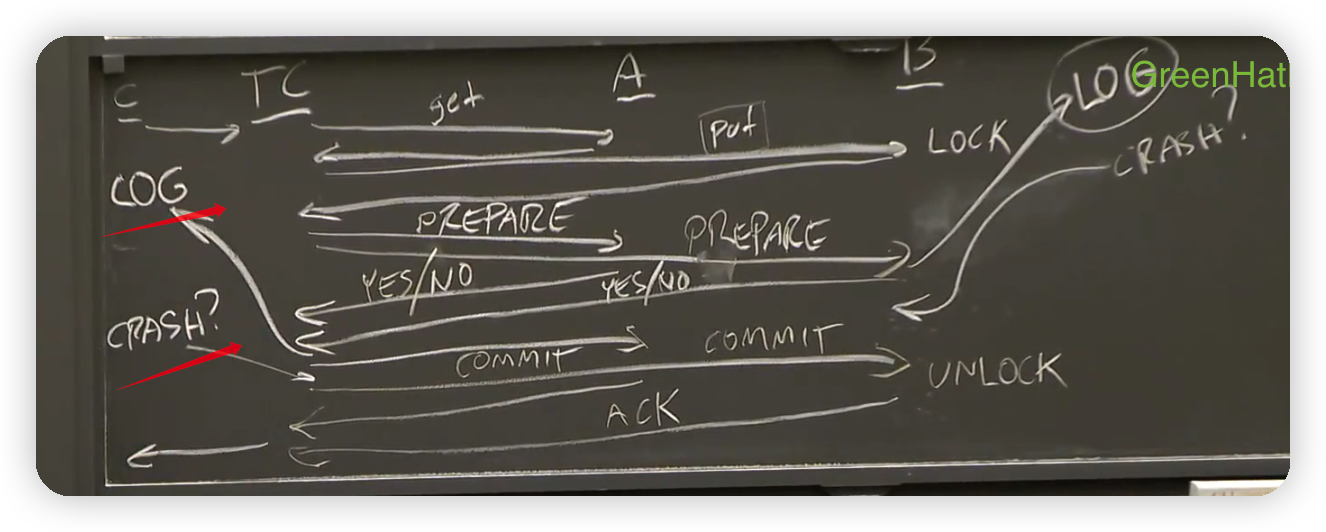 C TC A B
GreenHat
LOG
get
put
LOCK
CRASH?
LOG
PREPARE PREPARE
YES/NO YES/NO
CRASH?
COMMIT COMMIT
UNLOCK
ACK